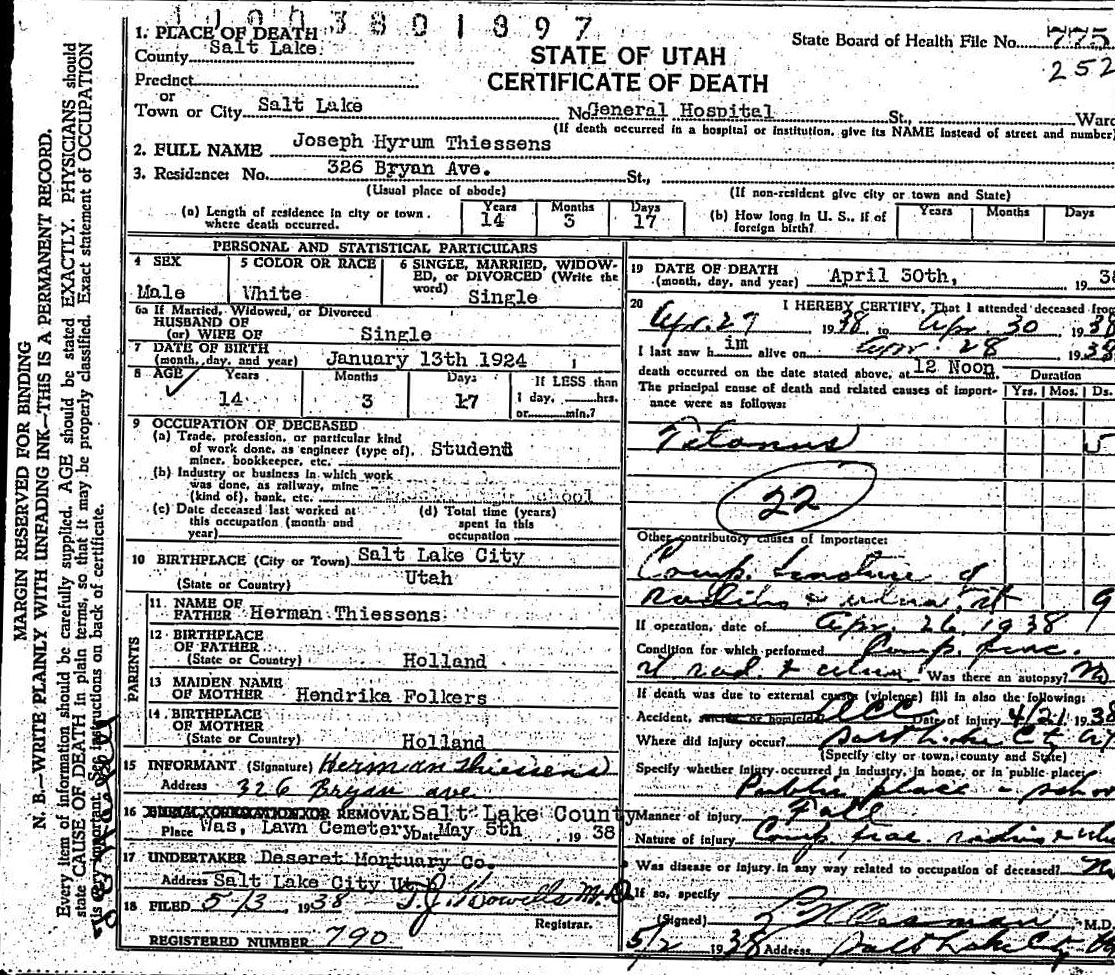 1 1 0 0 3 8 0 1 8 9 7
1. PLACE OF DEATH
County Salt Lake
Precinct
or
Town or City Salt Lake
STATE OF UTAH
CERTIFICATE OF DEATH
State Board of Health File No. 775
252
No. General Hospital St., Ward
(If death occurred in a hospital or institution, give its NAME instead of street and number)
2. FULL NAME Joseph Hyrum Thiessens
3. Residence: No. 326 Bryan Ave. St.,
(Usual place of abode) (If non-resident give city or town and State)
(a) Length of residence in city or town where death occurred. Years 14 Months 3 Days 17
(b) How long in U. S., if of foreign birth? Years Months Days
PERSONAL AND STATISTICAL PARTICULARS
4 SEX Male
5 COLOR OR RACE White
6 SINGLE, MARRIED, WIDOWED, or DIVORCED (Write the word) Single
6a If Married, Widowed, or Divorced
HUSBAND OF
(or) WIFE OF Single
7 DATE OF BIRTH
(month, day, and year) January 13th 1924
8 AGE Years 14 Months 3 Days 17
If LESS than
1 day, hrs.
or min.?
9 OCCUPATION OF DECEASED
(a) Trade, profession, or particular kind
of work done, as engineer (type of), Student
miner, bookkeeper, etc.
(b) Industry or business in which work
was done, as railway, mine
(kind of), bank, etc.
(c) Date deceased last worked at
this occupation (month and
year)
(d) Total time (years)
spent in this
occupation
10 BIRTHPLACE (City or Town) Salt Lake City
(State or Country) Utah
PARENTS
11. NAME OF
FATHER Herman Thiessens
12 BIRTHPLACE
OF FATHER
(State or Country) Holland
13 MAIDEN NAME
OF MOTHER Hendrika Folkers
14 BIRTHPLACE
OF MOTHER
(State or Country) Holland
15 INFORMANT (Signature) Herman Thiessens
Address 326 Bryan ave
16 REMOVAL Salt Lake County
Place Was. Lawn Cemetery Date May 5th 1938
17 UNDERTAKER Deseret Mortuary Co.
Address Salt Lake City Ut.
18 FILED 5/3 1938
Registrar.
REGISTERED NUMBER 790
19 DATE OF DEATH
(month, day, and year) April 30th, 1938
20 I HEREBY CERTIFY, That I attended deceased from
Apr. 27 1938 to Apr. 30 1938
I last saw him alive on Apr. 28 1938
death occurred on the date stated above, at 12 Noon m.
The principal cause of death and related causes of importance were as follows:
Duration
Yrs. Mos. Ds.
Tetanus 5
22
Other contributory causes of importance:
Comp. fracture of
radius & ulna, rt 9
If operation, date of Apr. 26, 1938
Condition for which performed Comp. frac.
rt rad. & ulna Was there an autopsy? No
If death was due to external causes (violence) fill in also the following:
Accident, suicide or homicide? Acc Date of injury 4/21 1938
Where did injury occur? Salt Lake City
(Specify city or town, county and State)
Specify whether injury occurred in industry, in home, or in public place:
Public place - school
Manner of injury Fall
Nature of injury Comp. frac. radius & ulna
Was disease or injury in any way related to occupation of deceased? No
If so, specify
(Signed) M.D.
5/2 1938 Address Salt Lake City
MARGIN RESERVED FOR BINDING
N. B.—WRITE PLAINLY WITH UNFADING INK—THIS IS A PERMANENT RECORD.
Every item of information should be carefully supplied. AGE should be stated EXACTLY. PHYSICIANS should
state CAUSE OF DEATH in plain terms, so that it may be properly classified. Exact statement of OCCUPATION
is very important. See instructions on back of certificate.